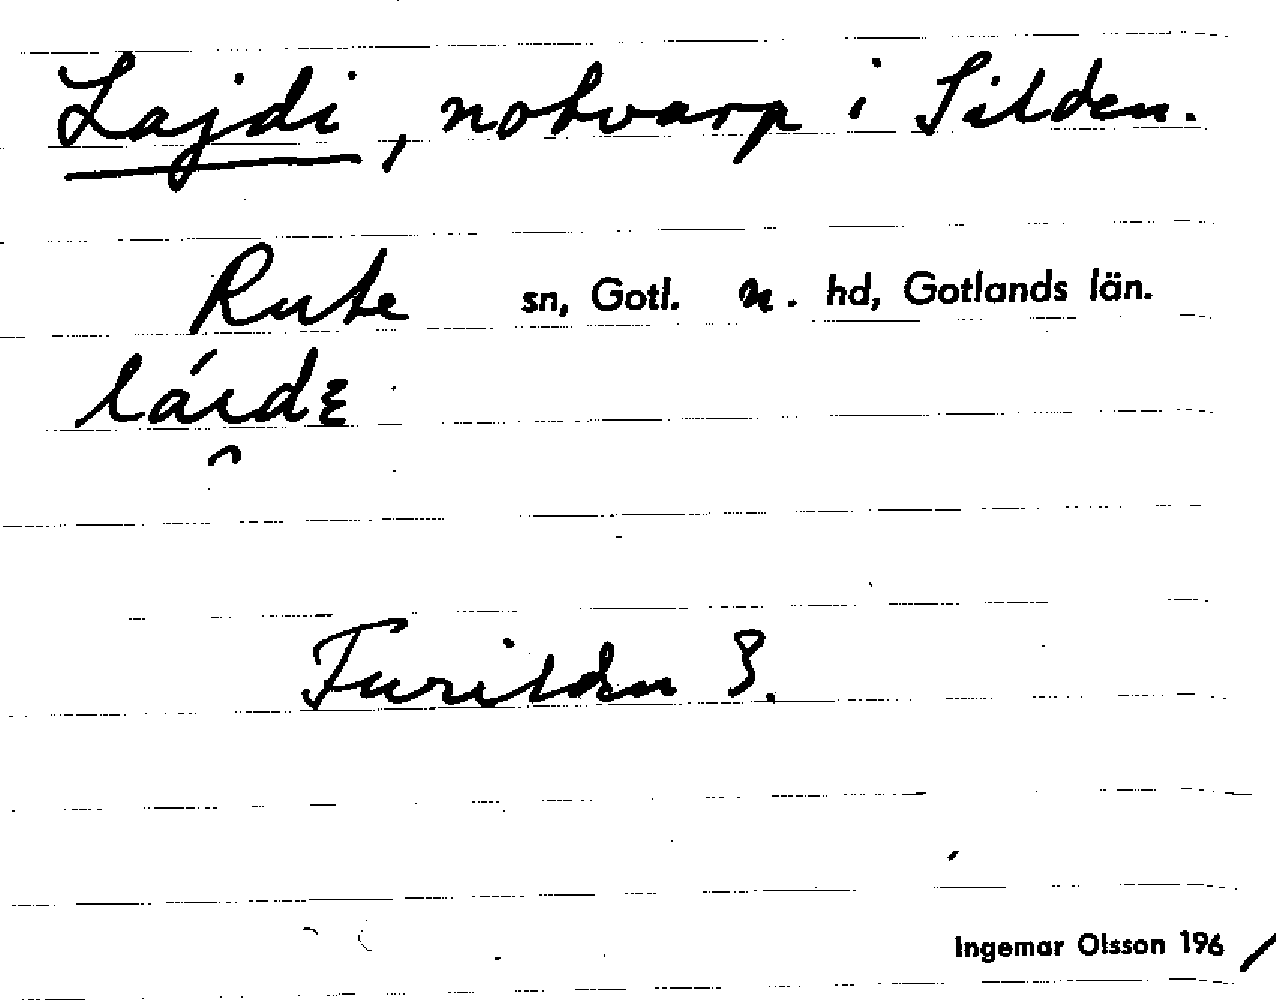 Lajdi, notvarp i Silden.
Rute sn, Gotl. n. hd, Gotlands län.
láı̯dɛ
Furilden 3.
Ingemar Olsson 196/